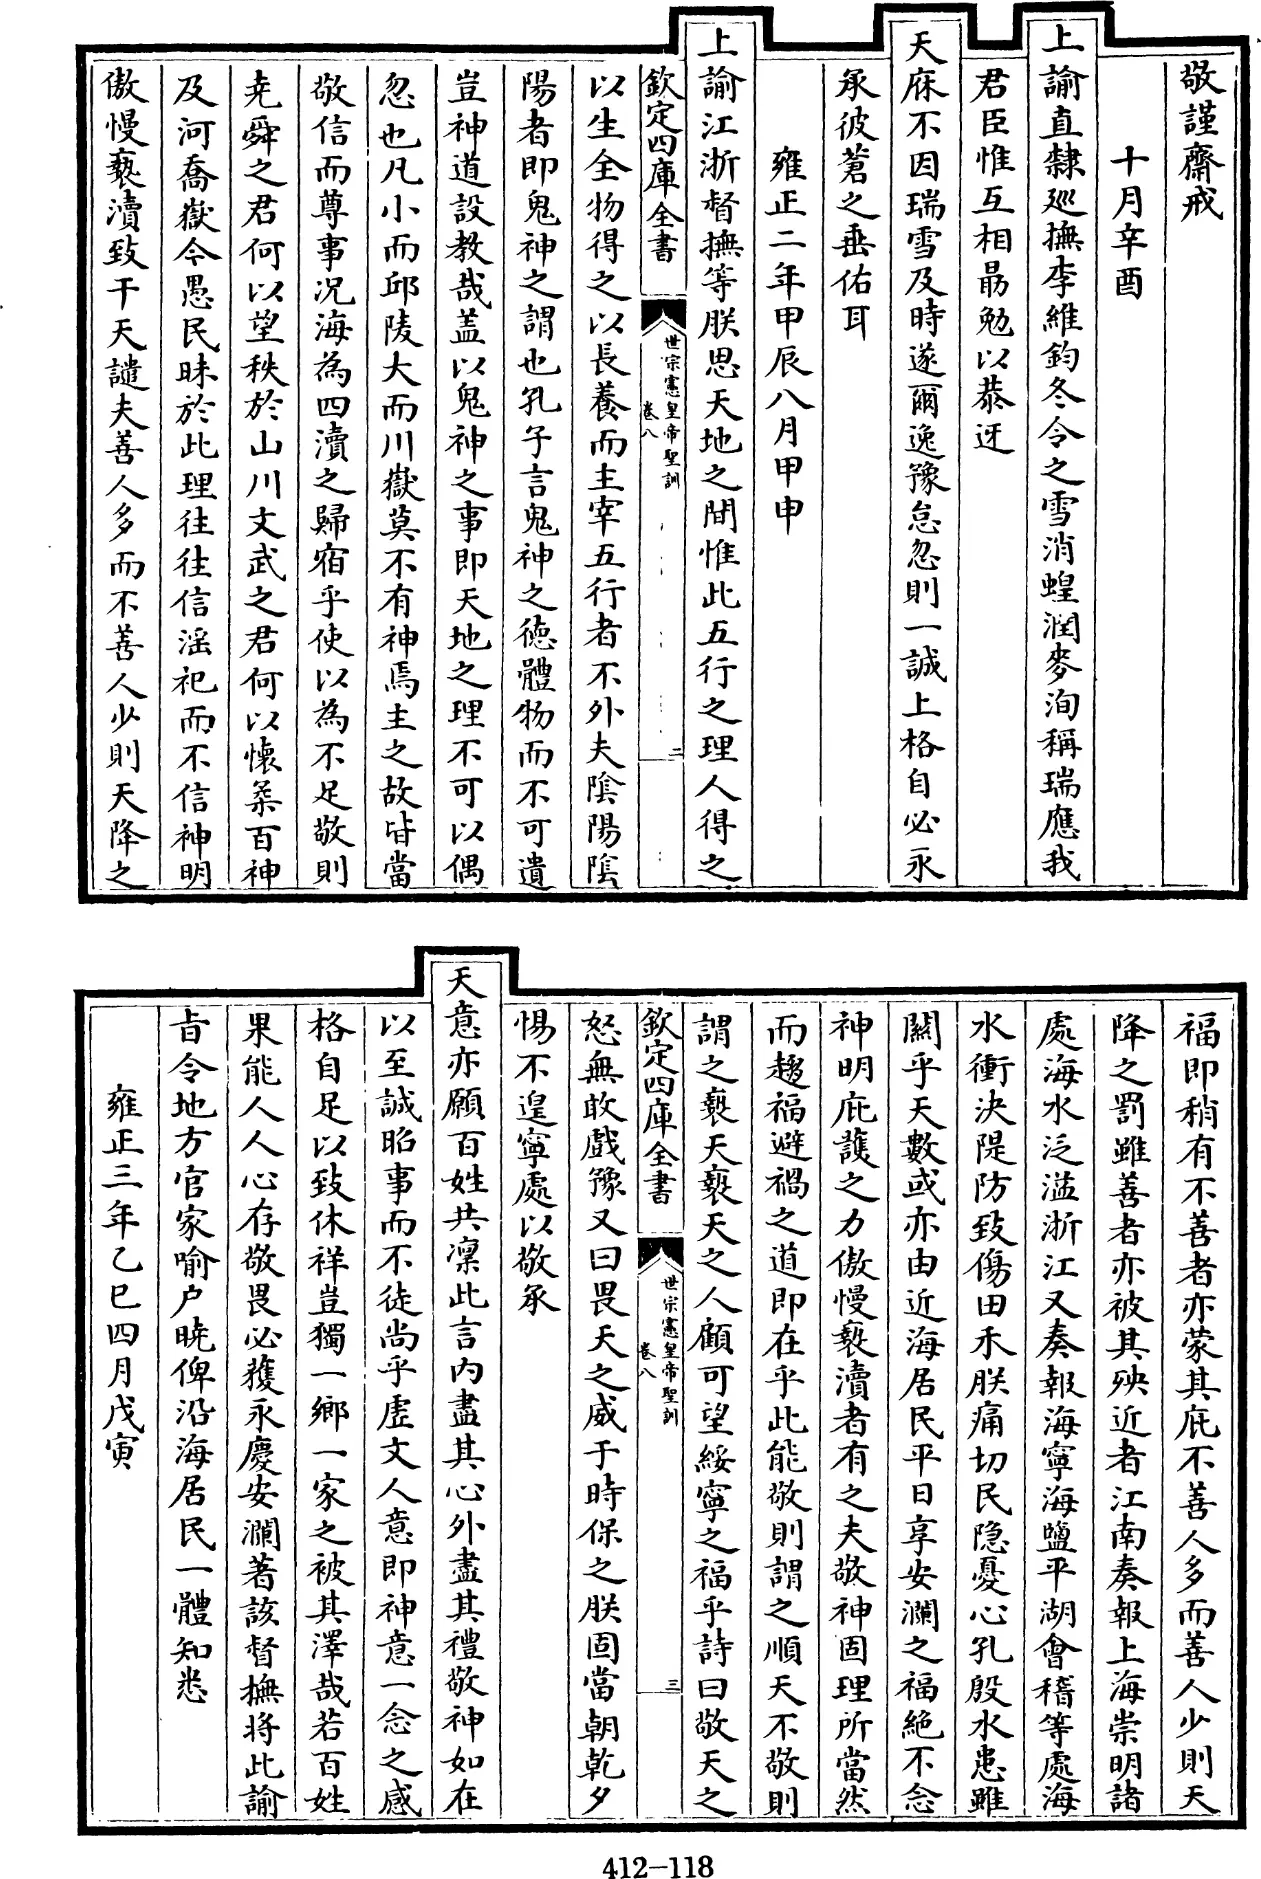 敬謹齋戒
十月辛酉
上諭直隸廵撫李維鈞冬令之雪消蝗潤麥洵稱瑞應我
君臣惟互相勗勉以恭迓
天庥不因瑞雪及時遂爾逸豫怠忽則一誠上格自必永
承彼蒼之垂佑耳
雍正二年甲辰八月甲申
上諭江浙督撫等朕思天地之間惟此五行之理人得之
欽定四庫全書
世宗憲皇帝聖訓
卷八
二
以生全物得之以長養而主宰五行者不外夫陰陽陰
陽者即鬼神之謂也孔子言鬼神之德體物而不可遺
豈神道設教哉蓋以鬼神之事即天地之理不可以偶
忽也凡小而邱陵大而川嶽莫不有神焉主之故皆當
敬信而尊事况海為四瀆之歸宿乎使以為不足敬則
堯舜之君何以望秩於山川文武之君何以懷柔百神
及河喬嶽今愚民昧於此理往往信淫祀而不信神明
傲慢褻瀆致干天譴夫善人多而不善人少則天降之
福即稍有不善者亦蒙其庇不善人多而善人少則天
降之罰雖善者亦被其殃近者江南奏報上海崇明諸
處海水泛溢浙江又奏報海寧海鹽平湖會稽等處海
水衝決隄防致傷田禾朕痛切民隐憂心孔殷水患雖
關乎天數或亦由近海居民平日享安瀾之福絶不念
神明庇護之力傲慢褻瀆者有之夫敬神固理所當然
而趨福避禍之道即在乎此能敬則謂之順天不敬則
謂之褻天褻天之人顧可望綏寧之福乎詩曰敬天之
欽定四庫全書
世宗憲皇帝聖訓
卷八
三
怒無敢戲豫又曰畏天之威于時保之朕固當朝乾夕
惕不遑寧處以敬承
天意亦願百姓共凜此言内盡其心外盡其禮敬神如在
以至誠昭事而不徒尚乎虛文人意即神意一念之感
格自足以致休祥豈獨一鄉一家之被其澤哉若百姓
果能人人心存敬畏必獲永慶安瀾著該督撫將此諭
旨令地方官家喻户曉俾沿海居民一體知悉
雍正三年乙巳四月戊寅
412-118